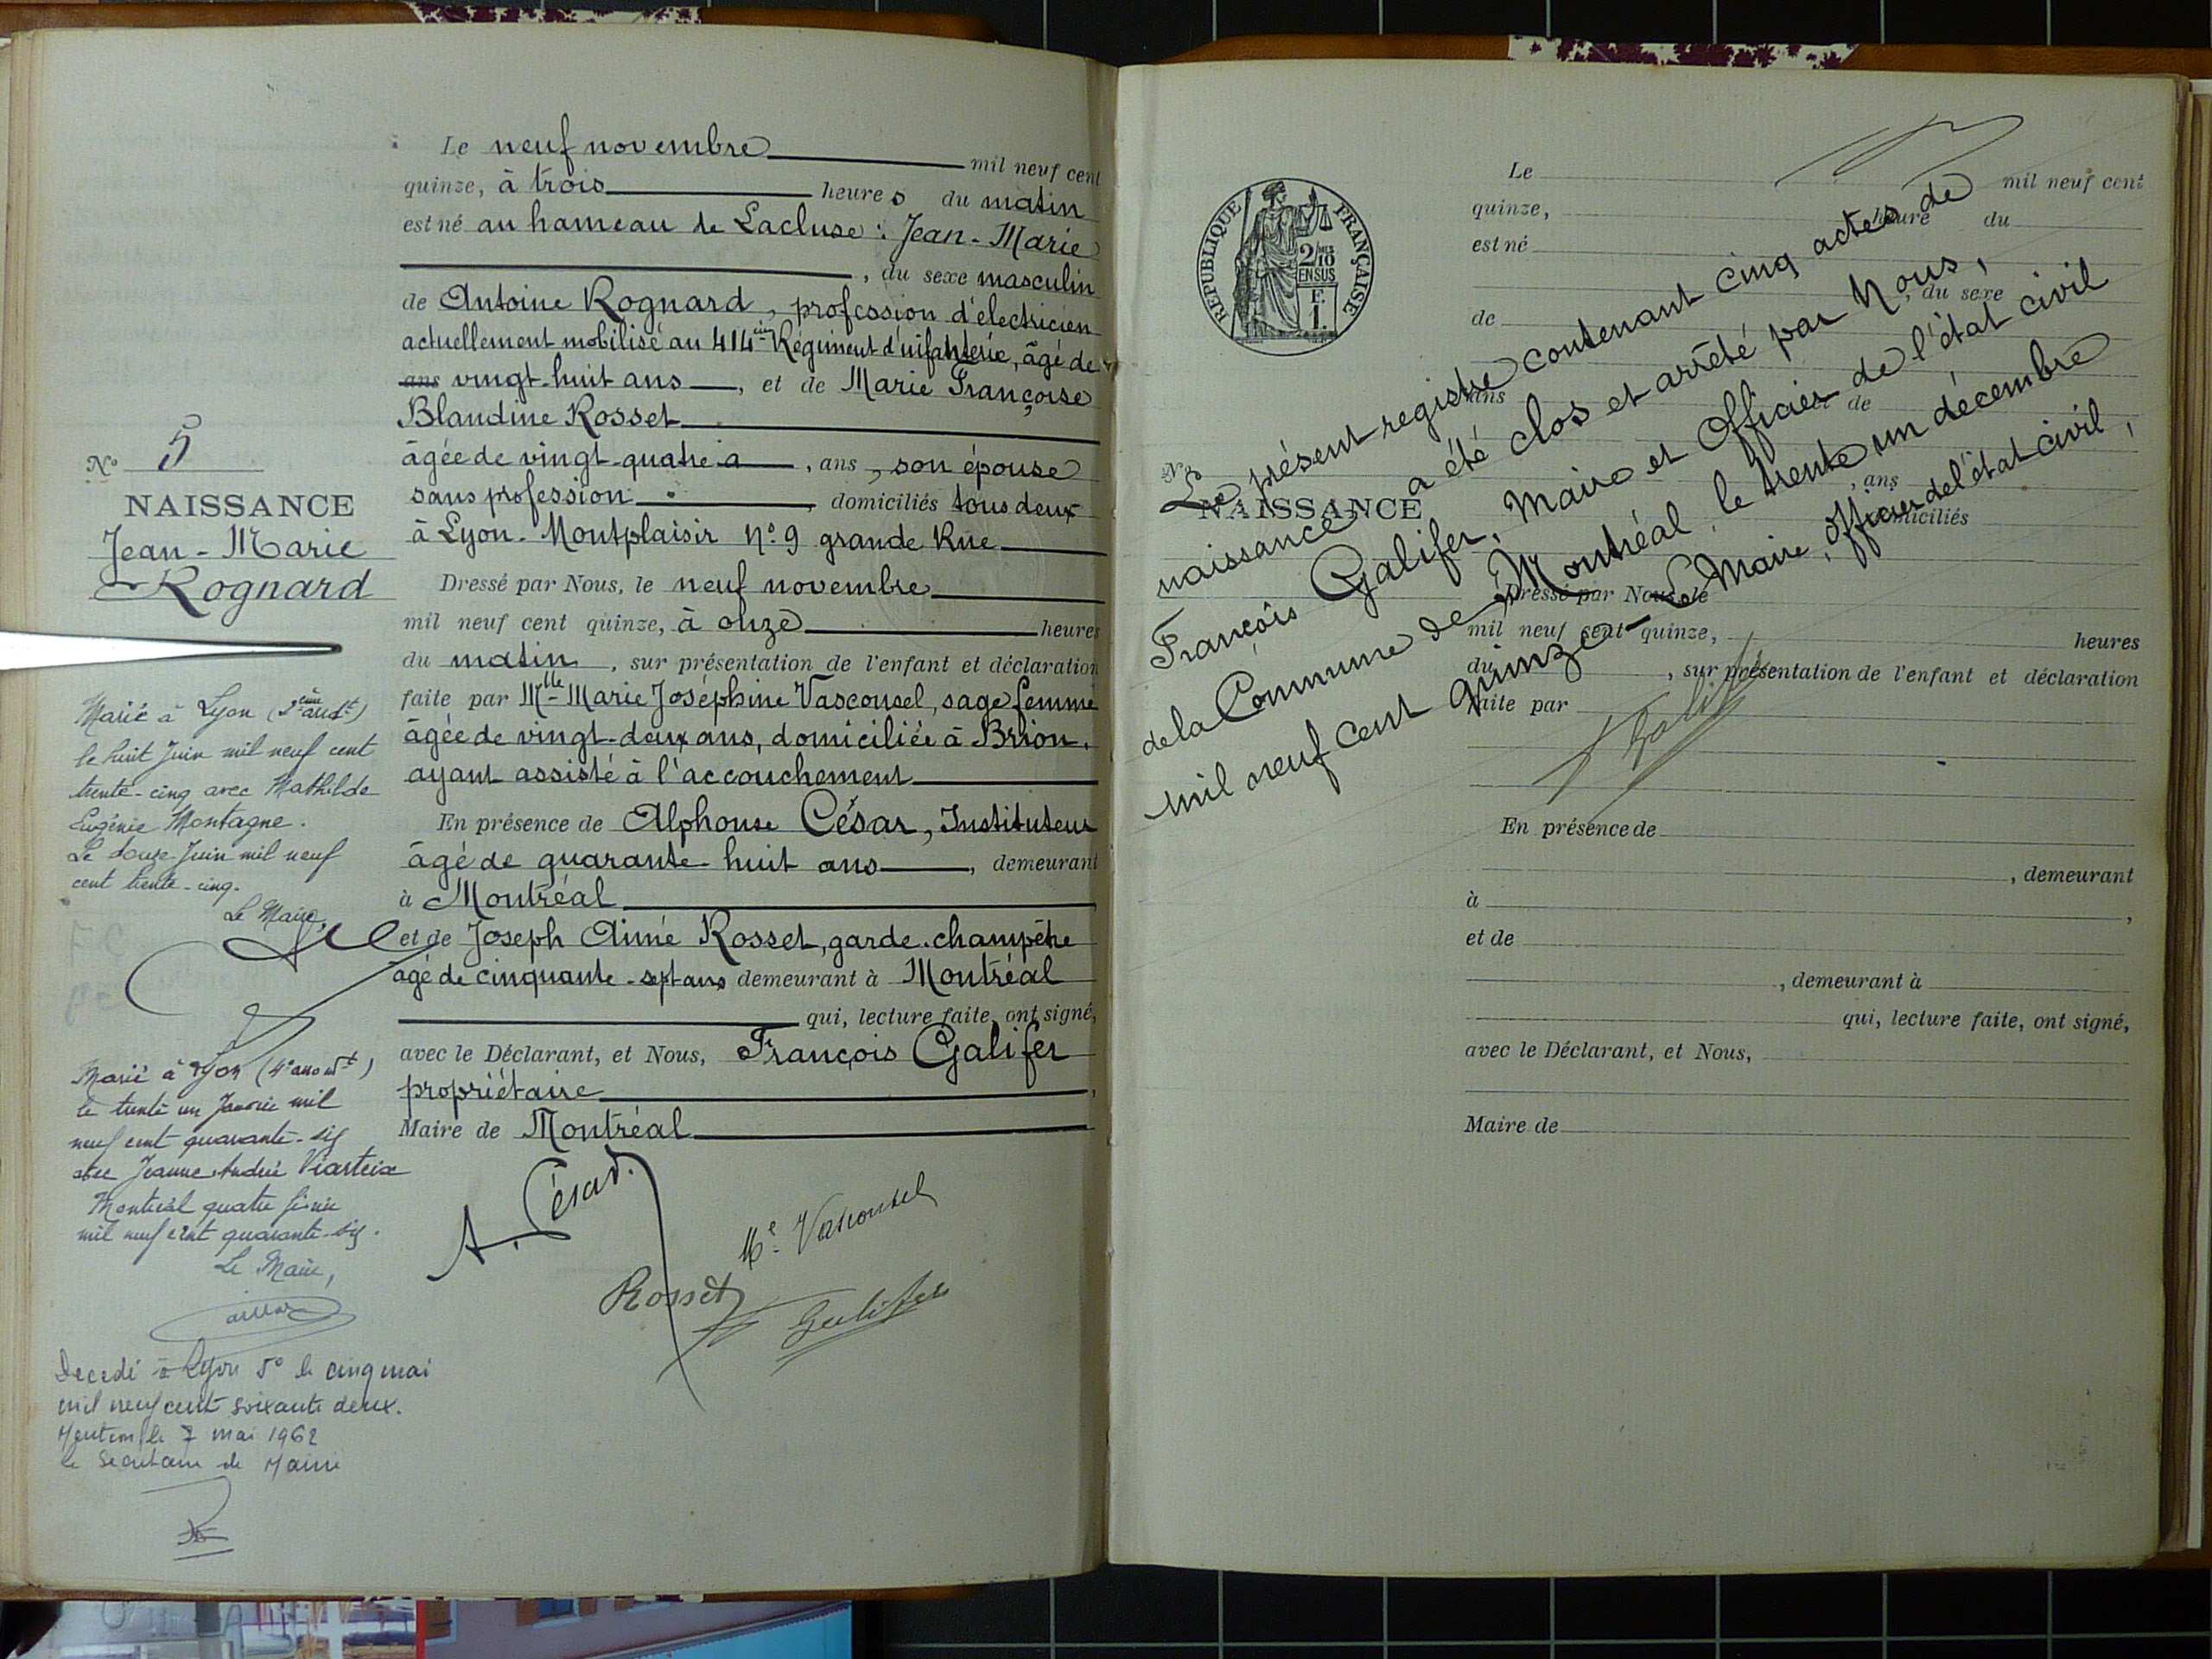 Le neuf novembre mil neuf cent
quinze, à trois heures du matin
est né au hameau de Lacluse : Jean-Marie
, du sexe masculin
de Antoine Rognard, profession d'électricien
actuellement mobilisé au 414ème Régiment d'infanterie, âgé de
ans vingt-huit ans, et de Marie Françoise
Blandine Rosset
âgée de vingt-quatre a, ans, son épouse
sans profession domiciliés tous deux
à Lyon-Montplaisir No. 9 grande Rue
Dressé par Nous, le neuf novembre
mil neuf cent quinze, à onze heures
du matin, sur présentation de l'enfant et déclaration
faite par Mlle Marie Joséphine Vasconsel, sage femme
âgée de vingt-deux ans, domiciliée à Brion,
ayant assisté à l'accouchement
En présence de Alphonse César, Instituteur
âgé de quarante-huit ans, demeurant
à Montréal
et de Joseph Aimé Rosset, garde-champêtre
âgé de cinquante-sept ans demeurant à Montréal
qui, lecture faite, ont signé,
avec le Déclarant, et Nous, François Galifer
propriétaire,
Maire de Montréal
A. César.
Me. Vasconsel
Rosset
Galifer
No 5
NAISSANCE
Jean-Marie
Rognard
Marié à Lyon (2ème arrdt)
le huit Juin mil neuf cent
trente-cinq avec Mathilde
Eugénie Montagne.
Le douze Juin mil neuf
cent trente-cinq.
Le Maire,
Marié à Lyon (4e arrondt)
le trente un Janvier mil
neuf cent quarante-six
avec Jeanne Andrée Viarteix
Montréal quatre février
mil neuf cent quarante-six.
Le Maire,
Décédé à Lyon 5e le cinq mai
mil neuf cent soixante deux.
Mention le 7 mai 1962
le Secrétaire de Mairie
RÉPUBLIQUE FRANÇAISE
2/10
EN SUS
F.
1.
Le mil neuf cent
quinze, heure du
est né
, du sexe
de
ans et de
, ans
domiciliés
No
NAISSANCE
Dressé par Nous, le
mil neuf cent quinze, heures
du , sur présentation de l'enfant et déclaration
faite par
En présence de
, demeurant
à ,
et de
, demeurant à
qui, lecture faite, ont signé,
avec le Déclarant, et Nous,
Maire de
Le présent registre contenant cinq actes de
naissance a été clos et arrêté par Nous,
François Galifer, Maire et Officier de l'état civil
de la Commune de Montréal, le trente un décembre
mil neuf cent quinze - Le Maire, Officier de l'état civil,